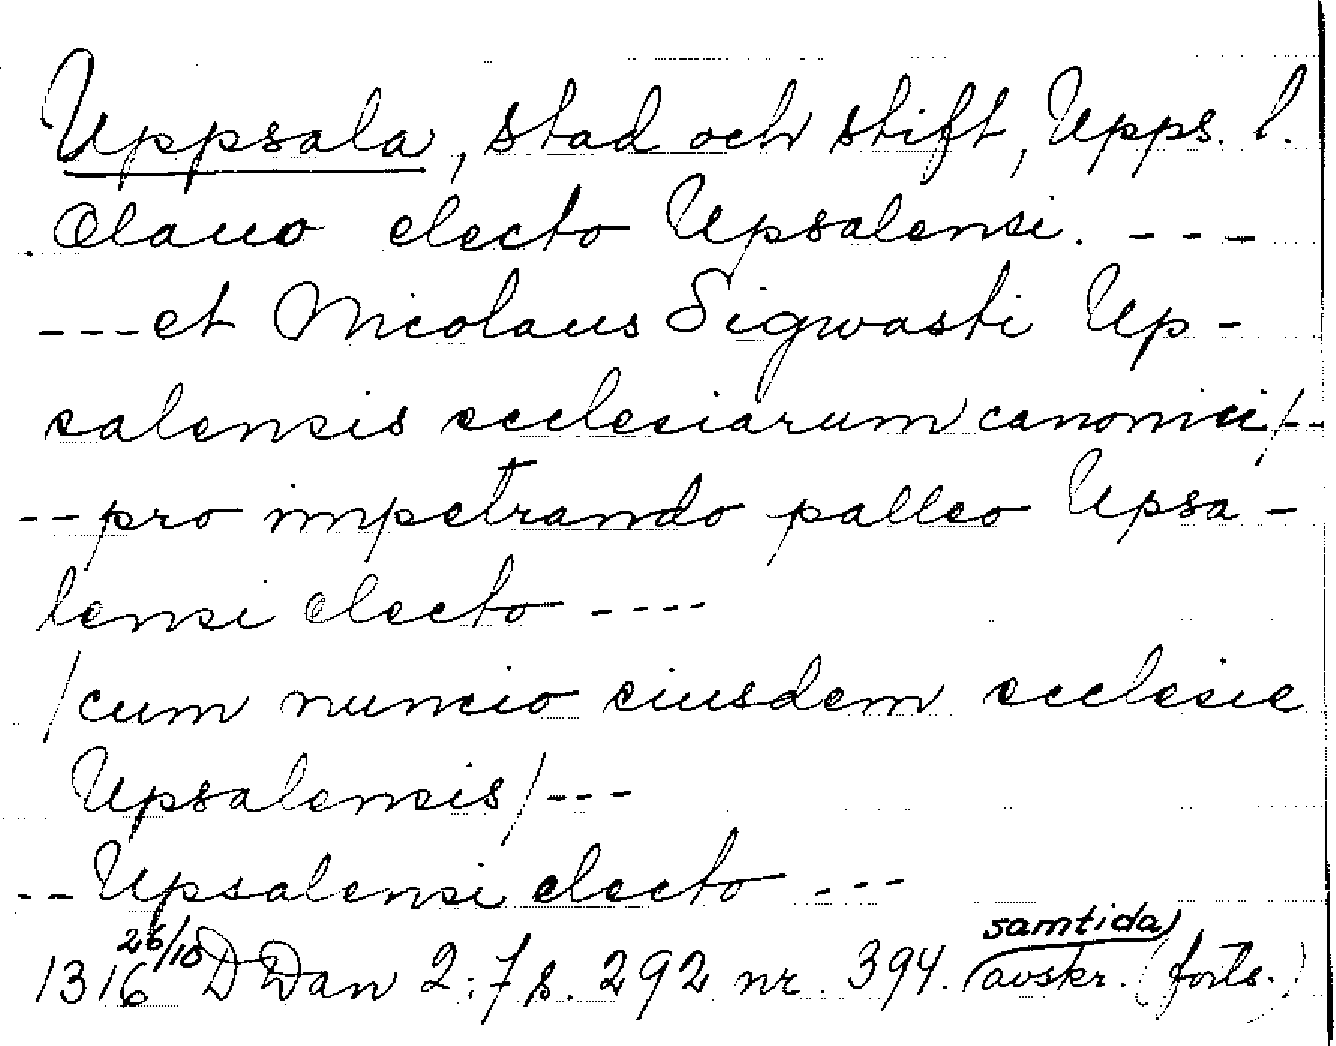 Uppsala, stad och stift, Upps. l.
Olauo electo Upsalensi. ---
---et Nicolaus Sigwasti Up-
salensis ecclesiarum canonici/--
--pro impetrando palleo Upsa-
lensi electo ----
/cum nuncio eiusdem ecclesie
Upsalensis/---
--Upsalensi electo ---
samtida
1316 26/10 D Dan 2:7 s. 292 nr. 394. avskr. (forts.)